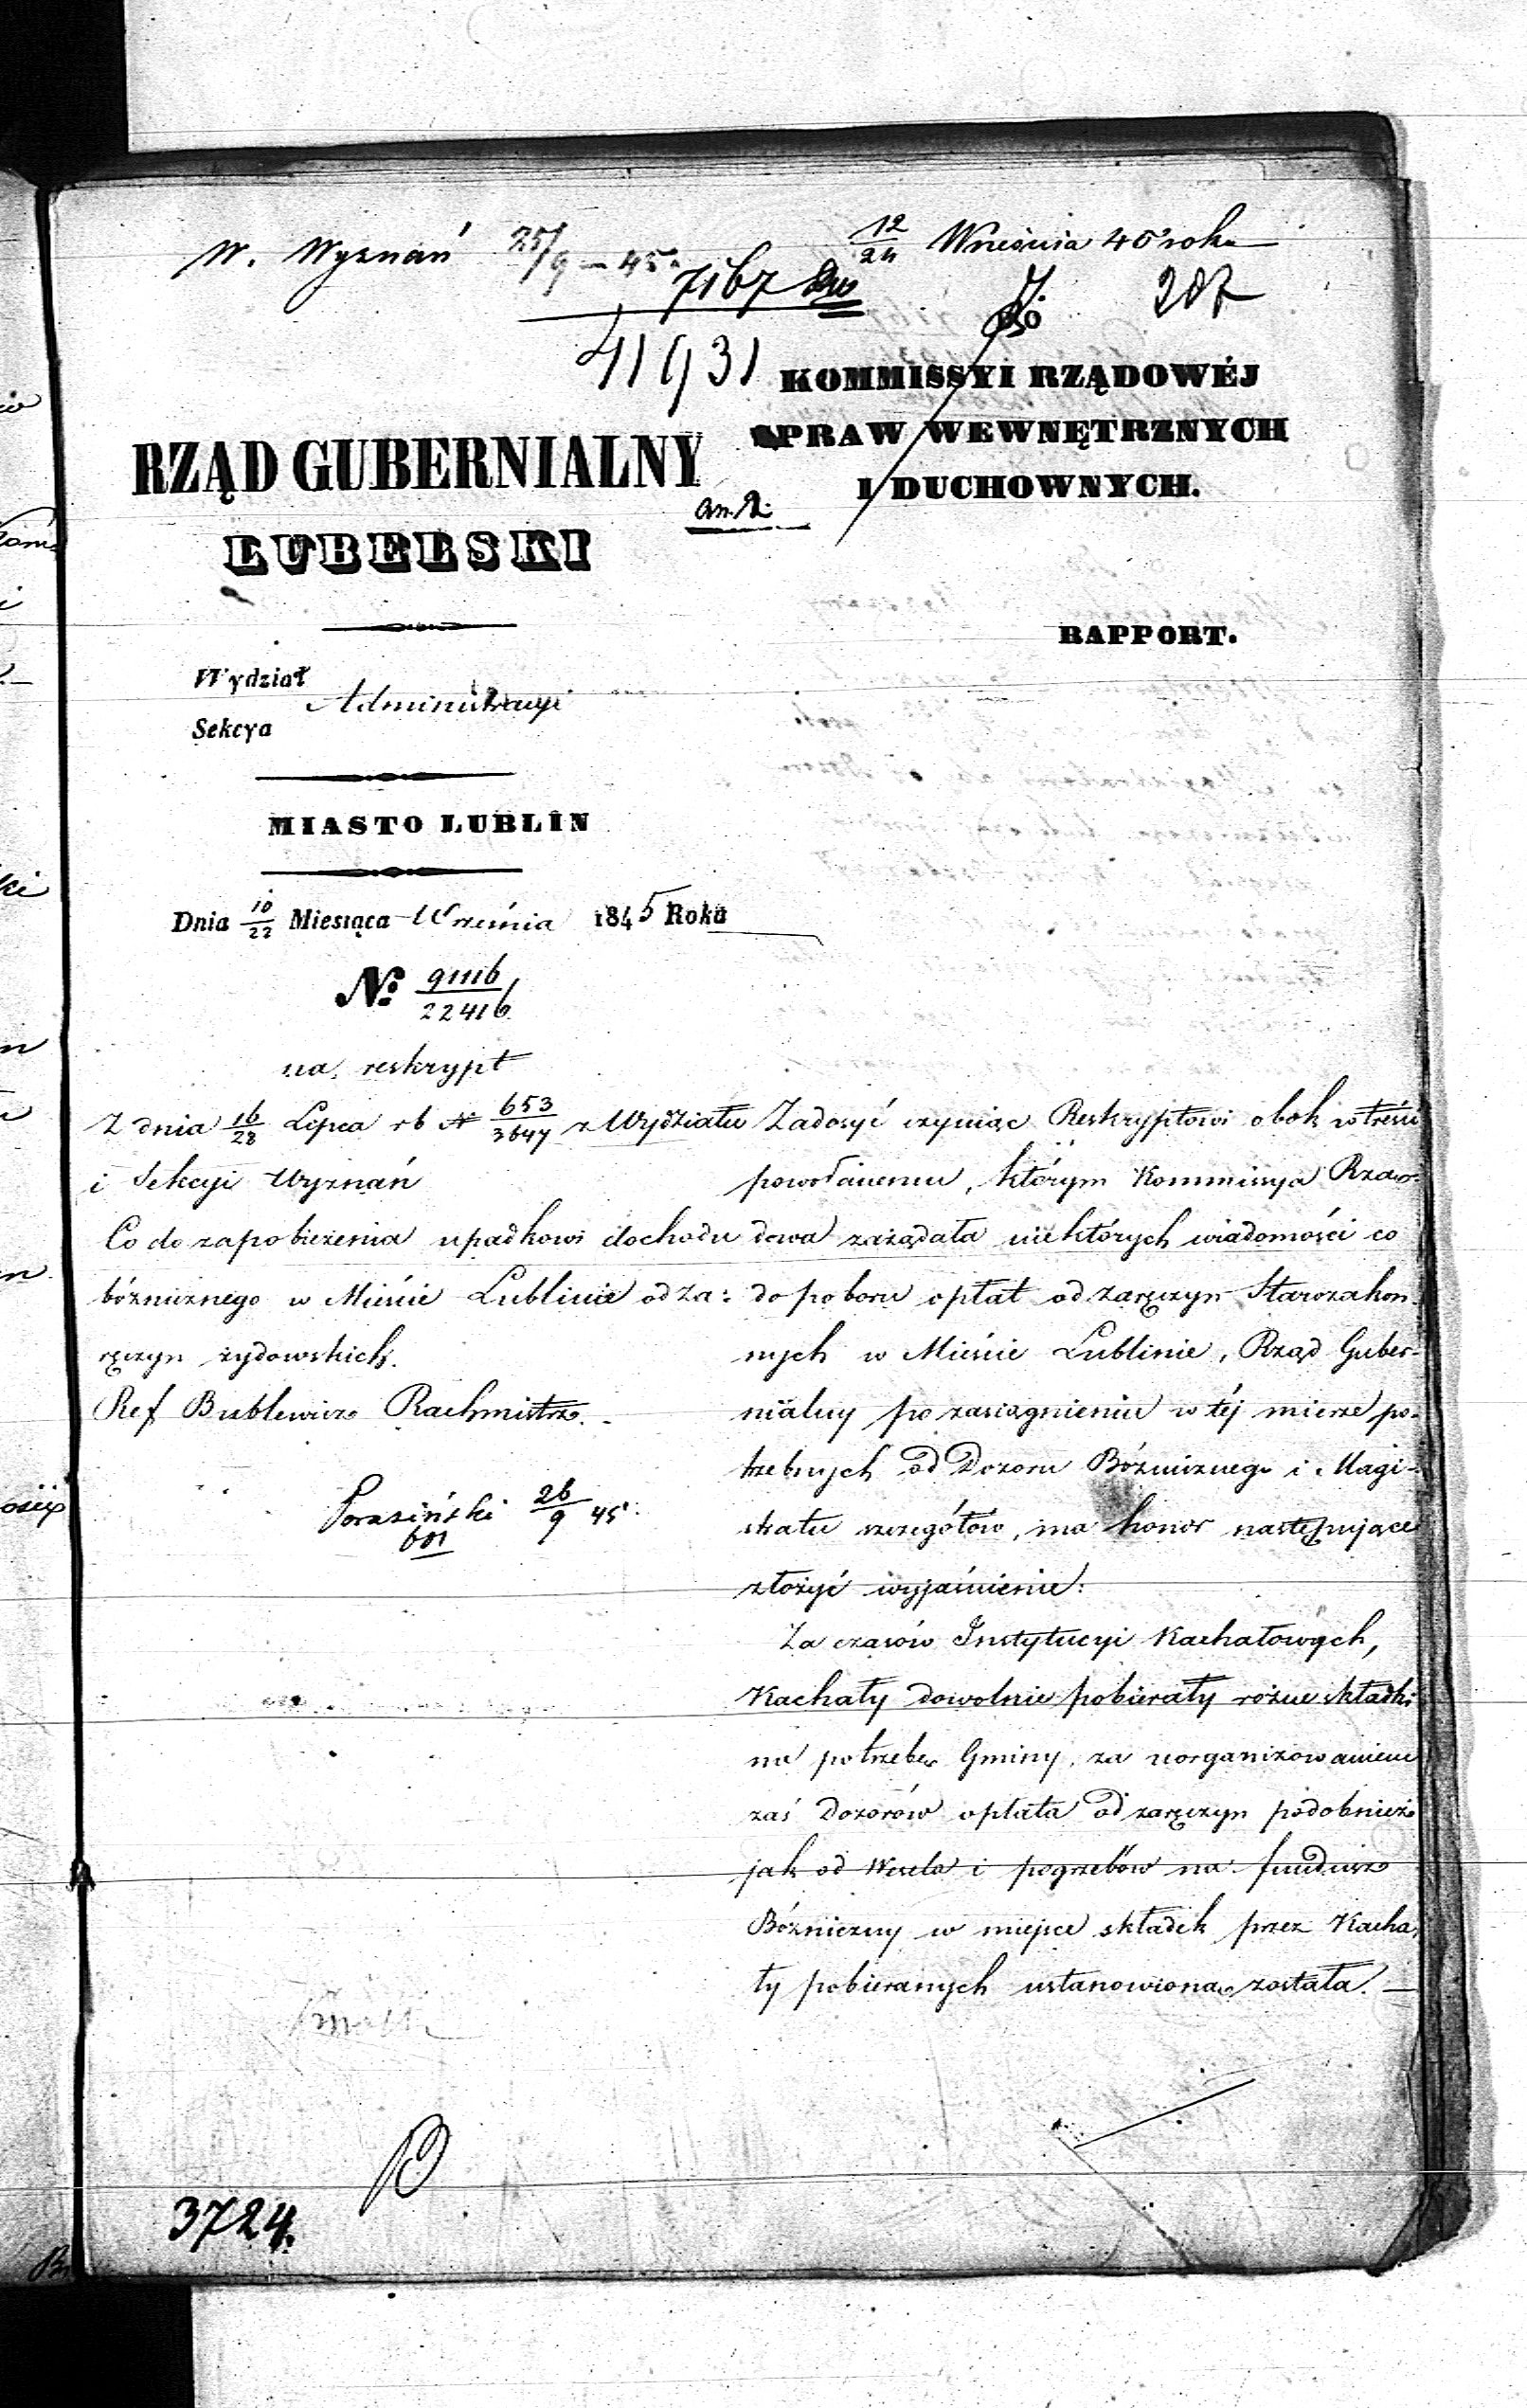 W. Wyznań 25/9 – 45.
12/24 Września 45 roku
7167
207
41931
Do
KOMMISSYI RZĄDOWÉJ
SPRAW WEWNĘTRZNYCH
I DUCHOWNYCH.
RZĄD GUBERNIALNY
LUBELSKI
RAPPORT.
Wydział
Administracyi
Sekcya
MIASTO LUBLIN
Dnia 10/22 Miesiąca Września 1845 Roku
№ 91116/22416
na reskrypt
Z dnia 16/28 Lipca rb № 653/3647 z Wydziału
i Sekcyi Wyznań
Co do zapobieżenia upadkowi dochodu
bóżnicznego w Mieście Lublinie od za:
ręczyn żydowskich.
Ref Bublewicz Rachmistrz.
26/9 45
601
Zadosyć czyniąc Reskryptowi obok w treści
powołanemu, którym Kommissya Rzą-
dowa zażądała niektórych wiadomości co
do poboru opłat od zaręczyn Starozakon-
nych w Mieście Lublinie, Rząd Guber-
nialny po zasiągnieniu w téj mierze po-
trzebnych od Dozoru Bóźnicznego i Magi-
stratu szczegółów, ma honor następujące
złożyć wyjaśnienie:
Za czasów Instytucyi Kachałowych,
Kachały dowolnie pobierały rożne składki
na potrzebę Gminy, za uorganizowaniem
zaś Dozorów opłata od zaręczyn podobnież
jak od Wesela i pogrzebów na fundusz
Bóżniczny w miejsce składek przez Kacha-
ły pobieranych ustanowioną została. —
3724.